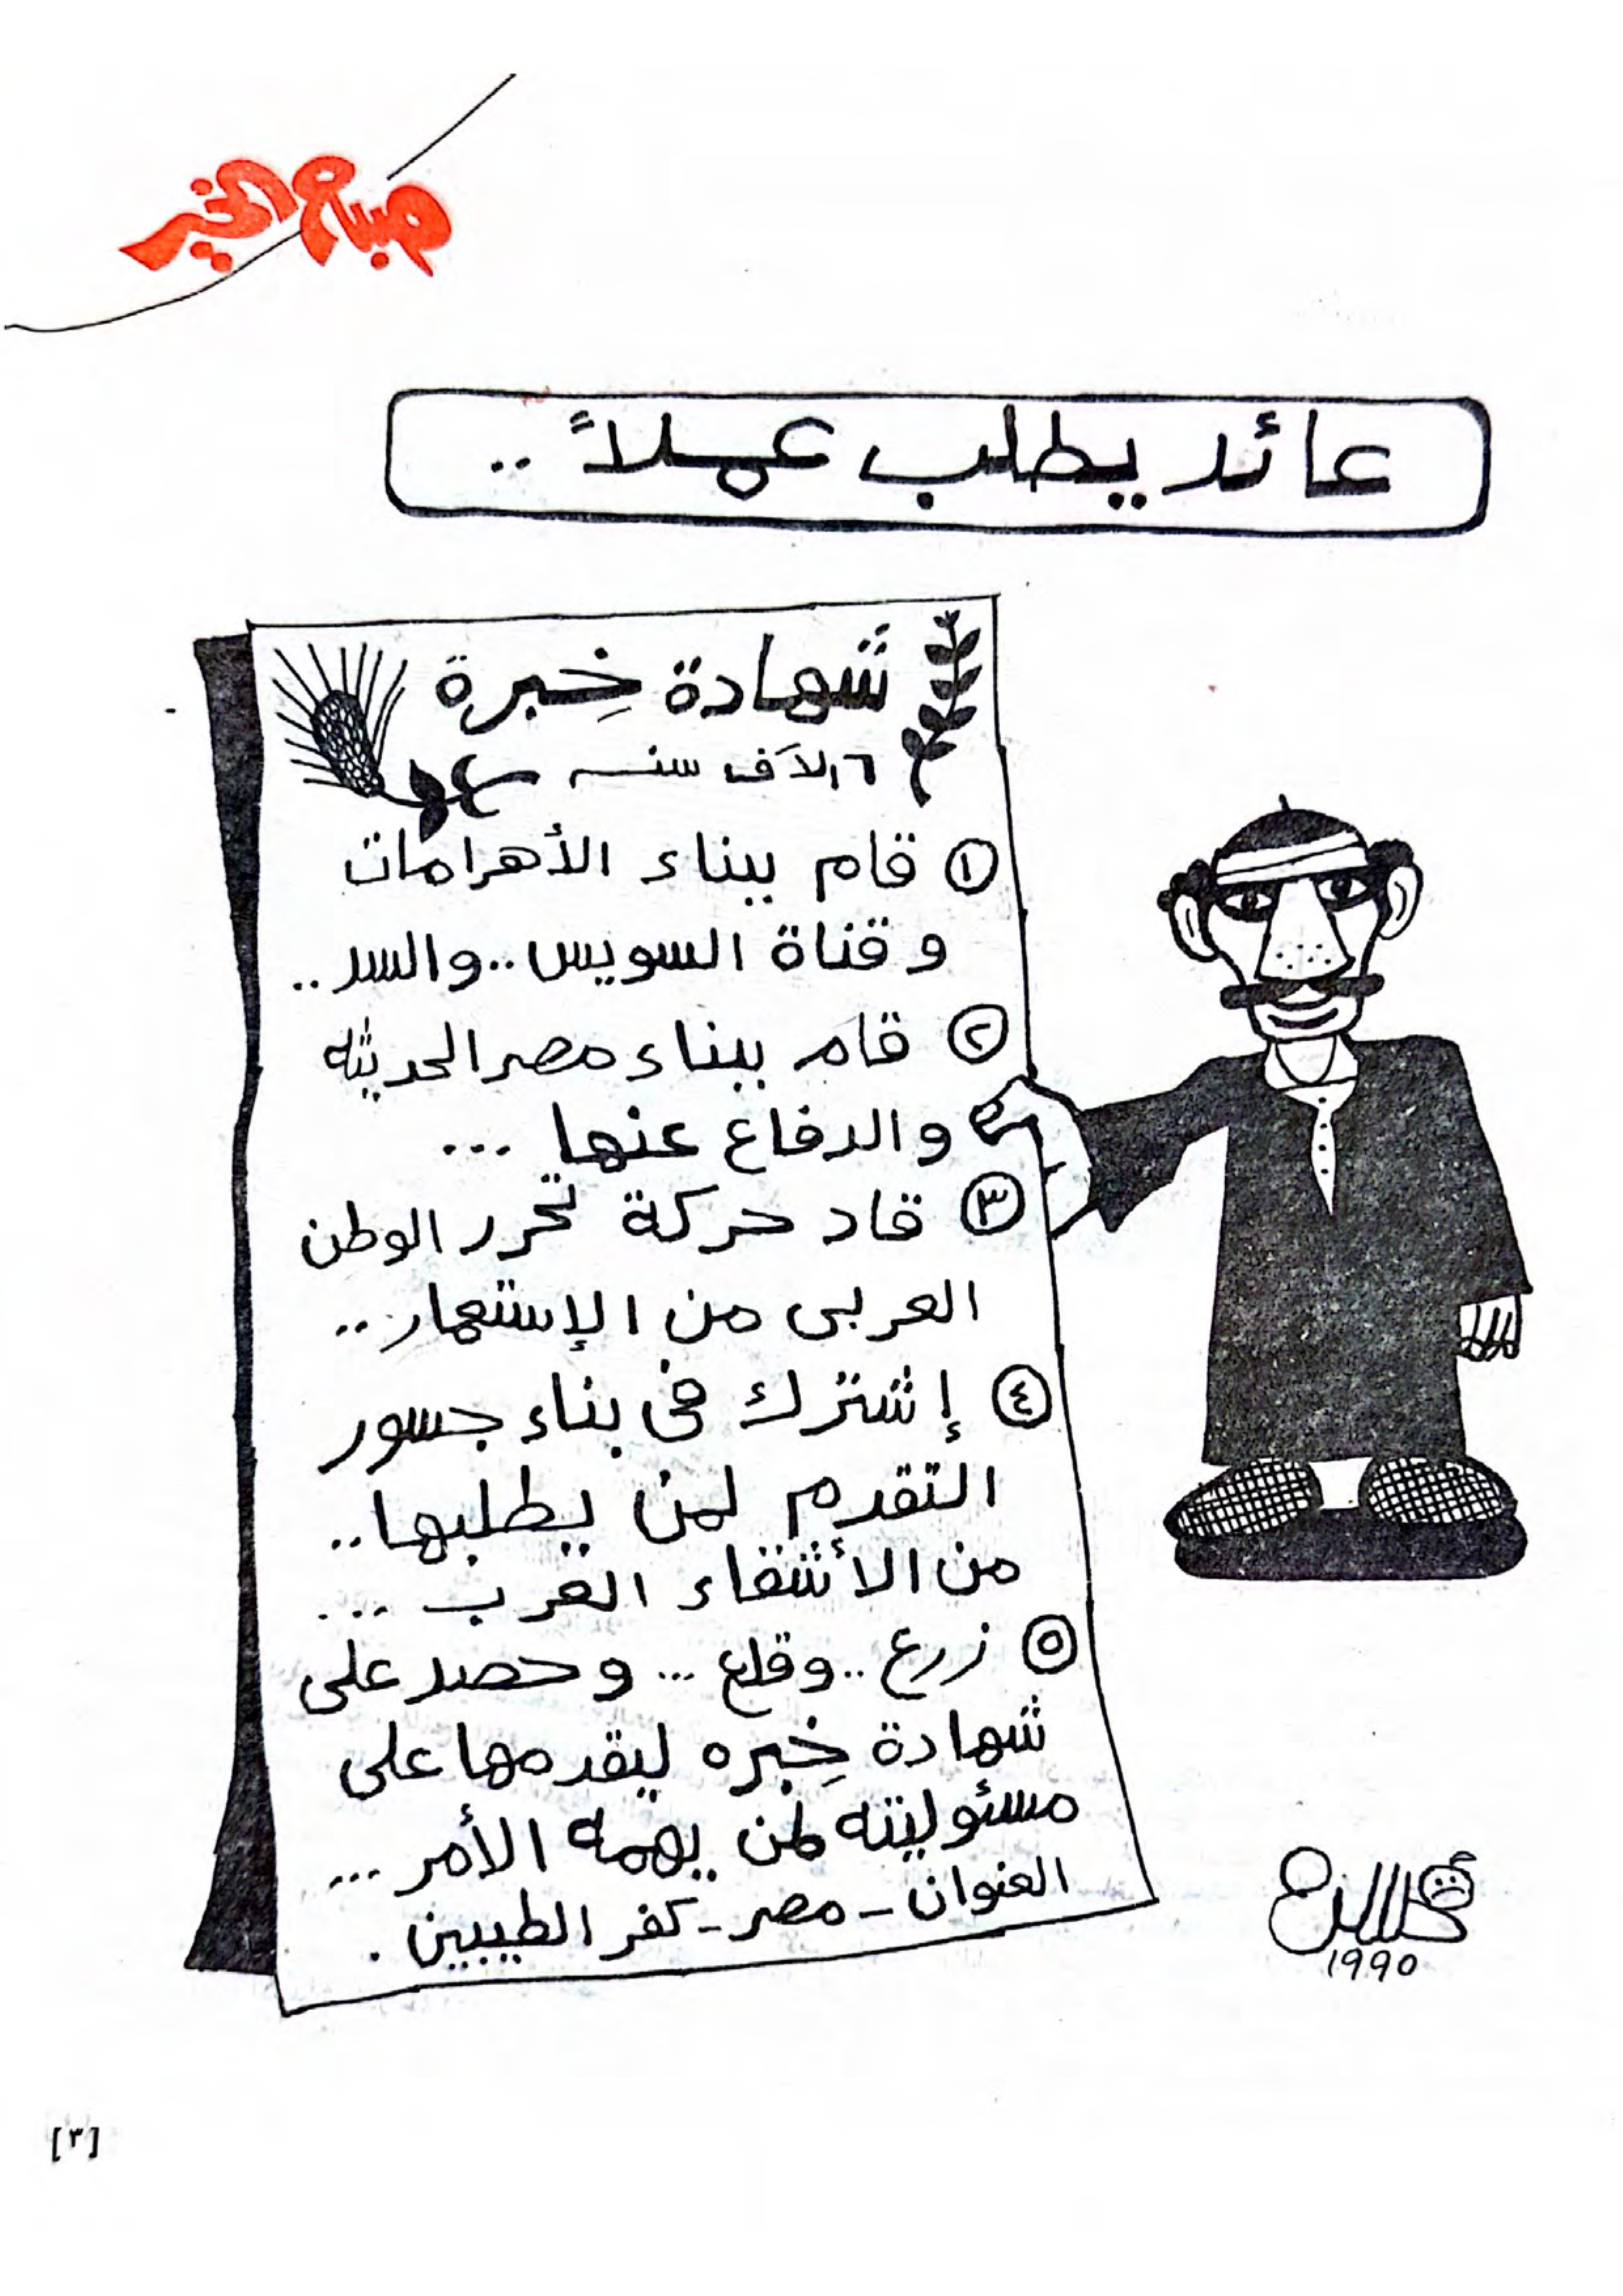 صباح الخير
عائد يطلب عملاً ..
شهادة خِبرة
٦ الآف سنه
١ قام ببناء الأهرامات
و قناة السويس .. والسد ..
٢ قام ببناء مصر الحديثه
والدفاع عنها ...
٣ قاد حركة تحرر الوطن
العربى من الإستعمار ..
٤ إشترك فى بناء جسور
التقدم لمن يطلبها ..
من الأشقاء العرب ...
٥ زرع .. وقلع ... وحصد على
شهادة خِبره ليقدمها على
مسئوليته لمن يهمه الأمر ...
العنوان - مصر - كفر الطيبين .
١٩٩٠
[٣]